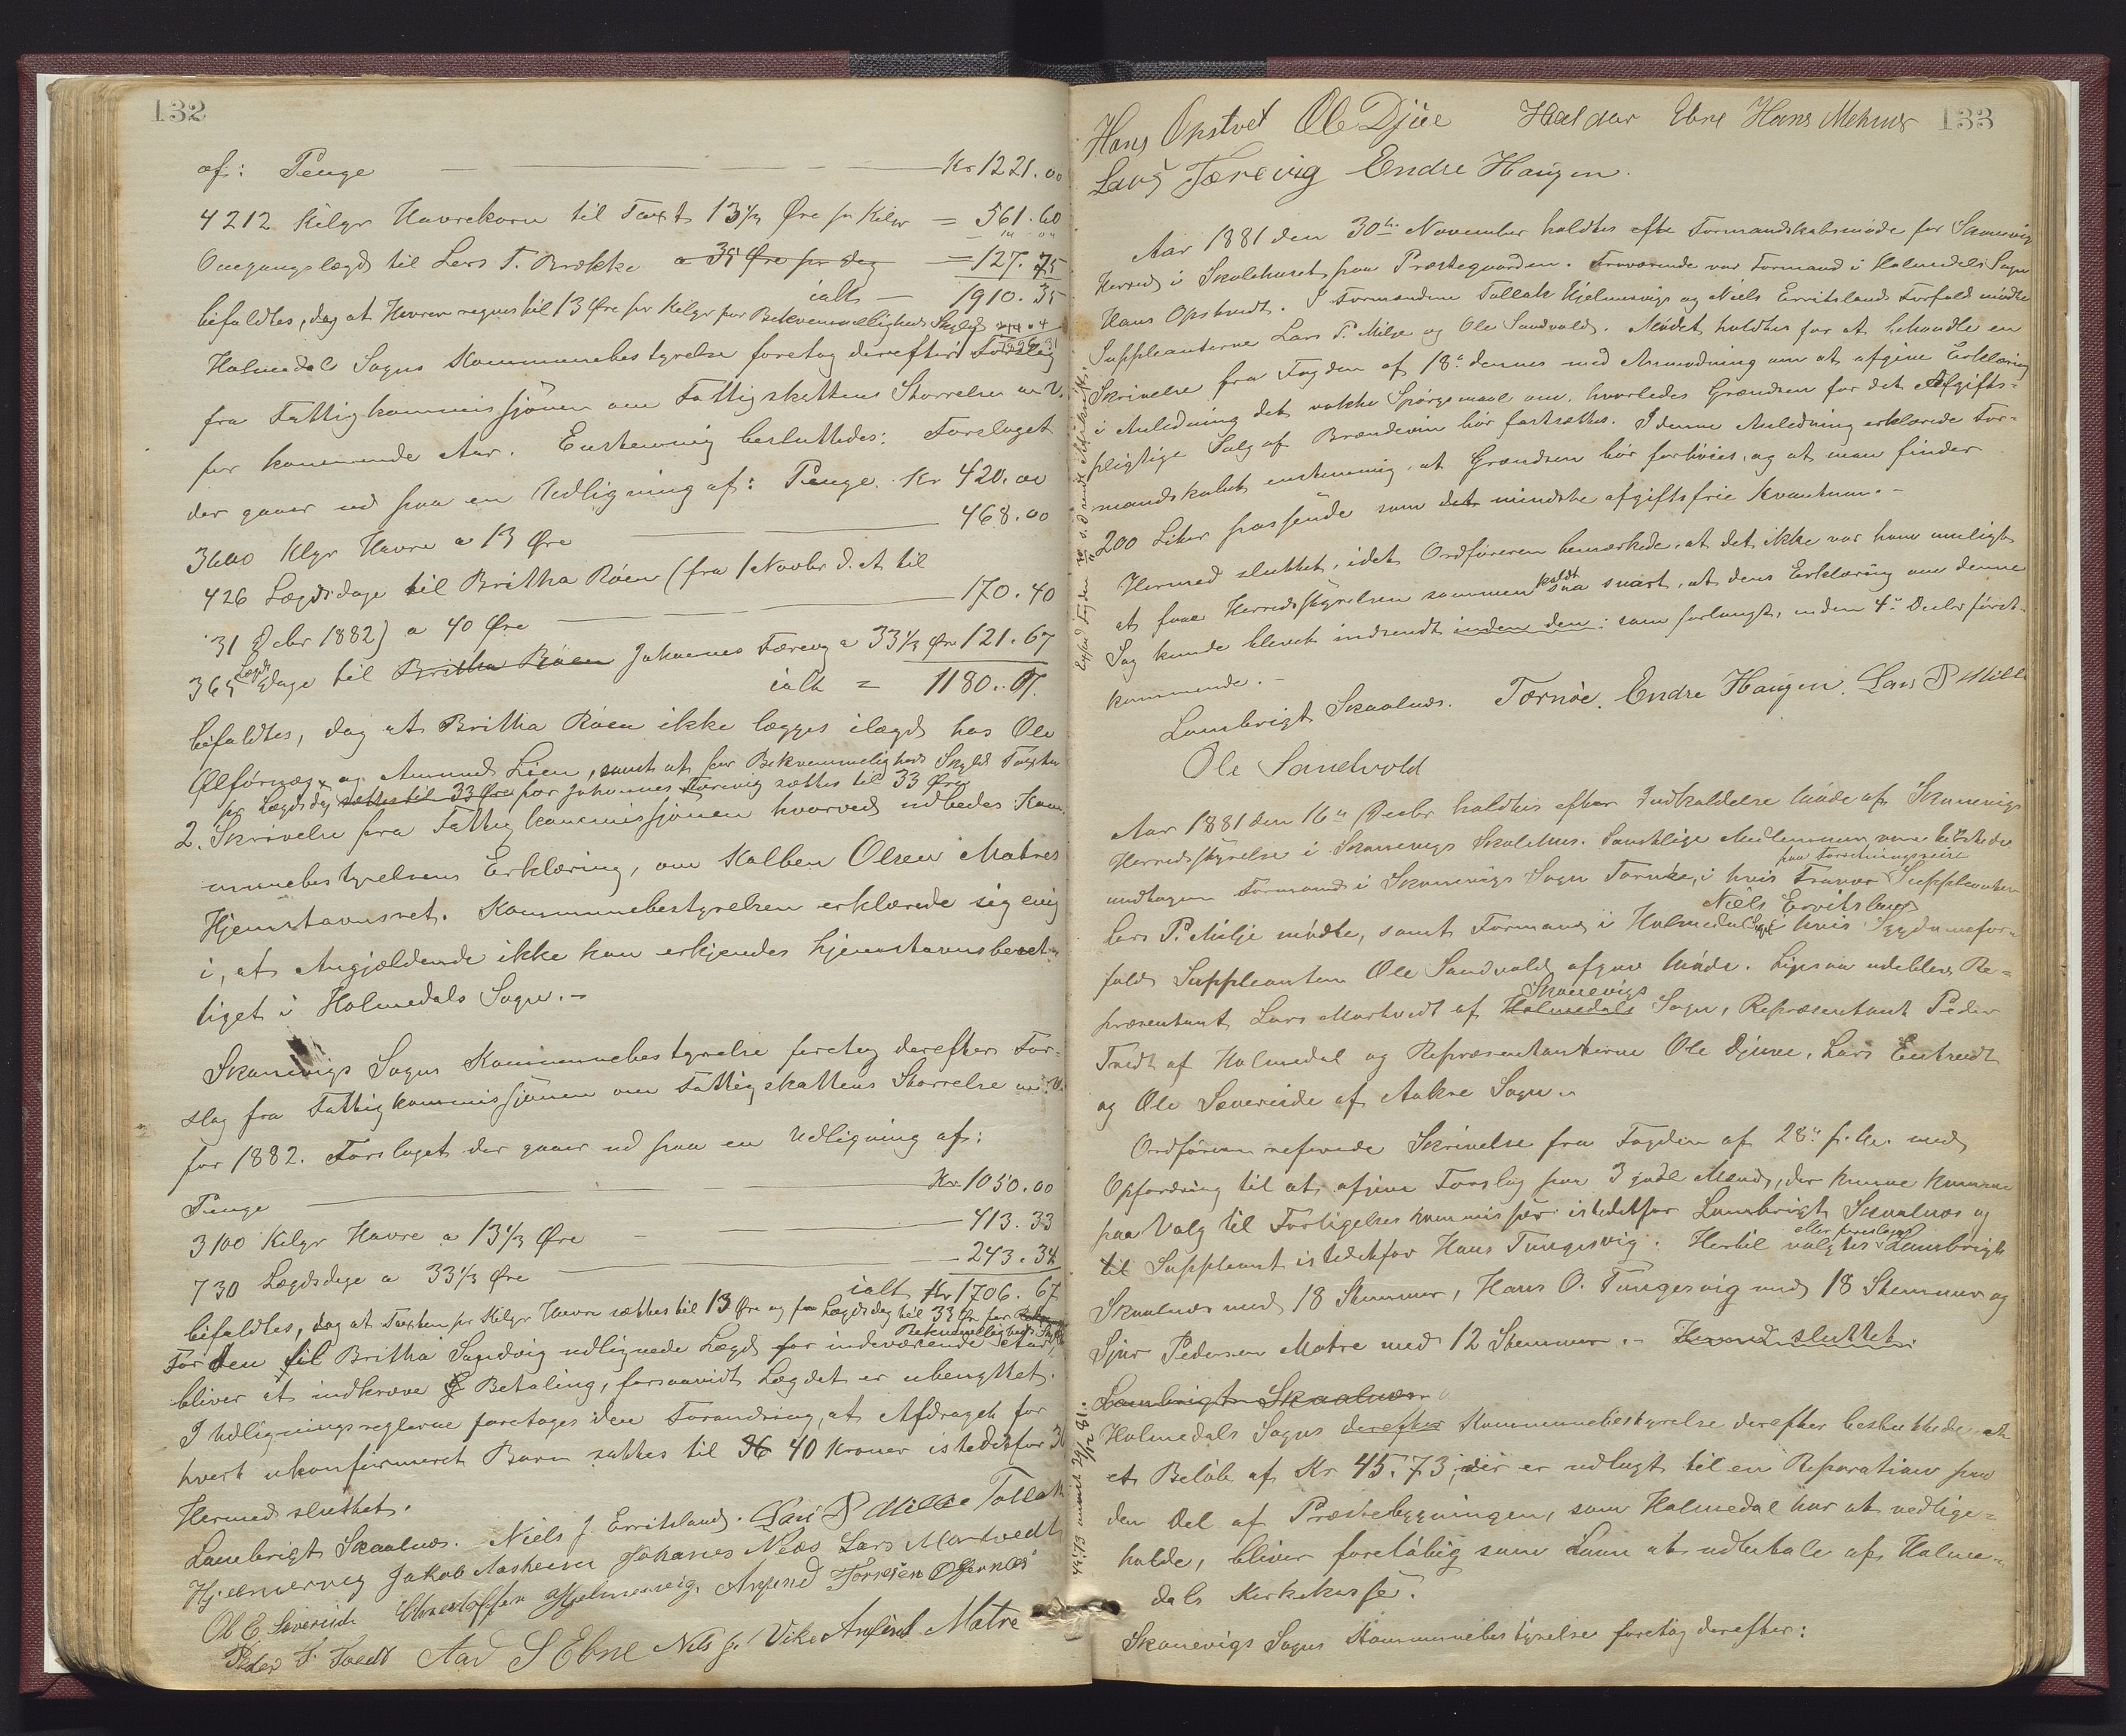 132
af: Penge Kr 1221.00
4212 Kilgr Havrekorn til Taxt 13 1/3 Øre pr Kilgr = 561.60
Omgangslægd til Lars T. Brække a 35 Øre pr dag = 127.75
ialt – 1910.35
bifaldtes, dog at Havren regnes til 13 Øre pr Kilgr for Bekvemmeligheds Skyld
Holmedals Sogns Kommunebestyrelse foretog derefter: Forslag
fra Fattigkommissjonen om Fattigskattens Størrelse m. V.
for kommende Aar. Enstemmig besluttedes: Forslaget
der gaar ud paa en Udligning af: Penge Kr 420.00
3600 Klgr Havre a 13 Øre 468.00
426 Lægdsdage til Britha Röen (fra 1 Novbr d. A. til
31 Debr 1882) a 40 Øre 170.40
365 Lægdsdage til Britha Röen Johannes Færevig a 33 1/3 Øre 121.67
ialt = 1180.07.
bifaldtes, dog at Britha Röen ikke lægges ilægd hos Ole
Ølfernæs og Amund Lien, samt at for Bekvemmeligheds Skyld Taxten
pr Lægdsdag sættes til 33 Øre for Johannes Færevig sættes til 33 Øre
2. Skrivelse fra Fattigkommissjonen hvorved udbedes Kom-
munebestyrelsens Erklæring, om Kalben Olsen Matres
Hjemstavnsret. Kommunebestyrelsen erklærede sig enig
i, at Angjældende ikke kan erkjendes hjemstavnsberet-
tiget i Holmedals Sogn. –
Skonevigs Sogns Kommunebestyrelse foretog derefter: For-
slag fra Fattigkommissjonen om Fattigskattens Størrelse m. V.
for 1882. Forslaget der gaar ud paa en Udligning af:
Penge Kr 1050.00
3100 Kilgr Havre a 13 1/3 Øre 413.33
730 Lægdsdage a 33 1/3 Øre 243.34
ialt Kr 1706.67
bifaldtes, dog at Taxten pr Kilgr Havre sættes til 13 Øre og pr Lægdsdag til 33 Øre for
Bekvemmeligheds Skyld
For den til Britha Sandvig udlignede Lægd for indeværende Aar
bliver at indkræve Betaling, forsaavidt Lægdet er ubenyttet.
I Udligningsreglerne foretages den Forandring, at Afdraget for
hvert ukonfirmeret Barn sættes til 36 40 Kroner istedetfor 36
Hermed sluttet.
Lambrigt Skaalnæs. Niels J. Erritsland. Lars P Millie Tollak
Hjelmerveg Jakob Aasheim Johanes Neös Lars Mortvedt
Ol E Severeide Christoffer Hjelmervig. Amund Torresen Ølfernæs
Peder T. Tvedt Aad S Ebne Nils J. Vike Anfind Matre
133
Hans Opstvet Ole Djüe Haldor Ebne Hans Mehus
Lars Færevig Endre Haugen.
Aar 1881 den 30te November holdtes efter Formandskabsmøde for Skonevig
Herred i Skolehuset paa Præstegaarden. Fraværende var Formand i Holmedals Sogn
Hans Opstvedt. I Formændene Tollak Hjelmervigs og Niels Erritslands Forfald mødte
Suppleanterne Lars P. Milje og Ole Sandvold. Mødet holdtes for at behandle en
Skrivelse fra Fogden af 18de dennes med Anmodning om at afgive Erklæring
i Anledning det vakte Spørgsmaal om, hvorledes Grændsen for det Afgifts-
pligtige Salg af Brændevin bör fastsættes. I denne Anledning erklærede For-
mandskabet enstemmig, at Grændsen bör forhöies, og at man finder
200 Liter passende som det mindste afgiftsfrie Kvantum. –
Hermed sluttet, idet Ordföreren bemærkede, at det ikke var ham muligt
at faae Herredsstyrelsen sammenkaldt saa snart, at dens Erklæring om denne
Sag kunde blevet indsendt inden den: som forlangt, inden 4de Decbr först-
kommende. –
Lambrigt Skaalnæs. Tornöe. Endre Haugen. Lars P Mille
Ole Sandvold
Aar 1881 den 16de Decbr holdtes efter Indkaldelse Møde af Skonevigs
Herredsstyrelse i Skonevigs Skolehus. Samtlige Medlemmer vare tilstede
undtagen Formand i Skonevigs Sogn Tornöe, i hvis Fravær paa Forretningsreise Suppleanten
Lars P. Milje mødte, samt Formand i Holmedals Sogn Niels Erritsland i hvis Sygdomsfor-
fald Suppleanten Ole Sandvold afgav Møde. Ligesaa udeblev Re-
præsentant Lars Mortvedt af Holmedals Skonevigs Sogn, Repræsentant Peder
Tvedt af Holmedal og Repræsentanterne Ole Djuve, Lars Entvedt
og Ole Severeide af Aakre Sogn.
Ordföreren refererede Skrivelse fra Fogden af 28de f. M. med
Opfordring til at afgive Forslag paa 3 gode Mænd, der kunne komme
paa Valg til Forligelseskommissær istedetfor Lambrigt Skaalnæs og
til Suppleant istedetfor Hans Tungesvig. Hertil valgtes eller foresloges Lambrigt
Skaalnæs med 18 Stemmer, Hans O. Tungesvig med 18 Stemmer og
Sjur Pedersen Matre med 12 Stemmer. – Hermed sluttet.
Lambrigt Skaalnæs
Holmedals Sogns derefter Kommunebestyrelse derefter besluttede at
et Belöb af Kr 45.73, der er udlagt til en Reparation paa
den Del af Præstebygningen, som Holmedal har at vedlige-
holde, bliver foreløbig som Laan at udbetale af Holme-
dals Kirkekasse.
Skonevigs Sogns Kommunebestyrelse foretog derefter: